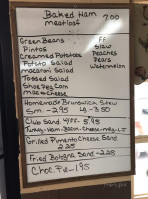 Baked Ham
meatloaf 7.00
Green Beans FF
Pintos Slaw
Creamed Potatoes Peaches
Potato Salad Pears
macaroni Salad Watermelon
Tossed Salad
Shoe Peg Corn
Mac & Cheese
Homemade Brunswick Stew
Sm. - 2.95 Lg - 3.50
Club Sand. w/FF. 5.95
Turkey-Ham-Bacon-Cheese
Grilled Pimento Cheese Sand
2.25
Fried Bologna Sand - 2.25
Choc. Pie - 1.95